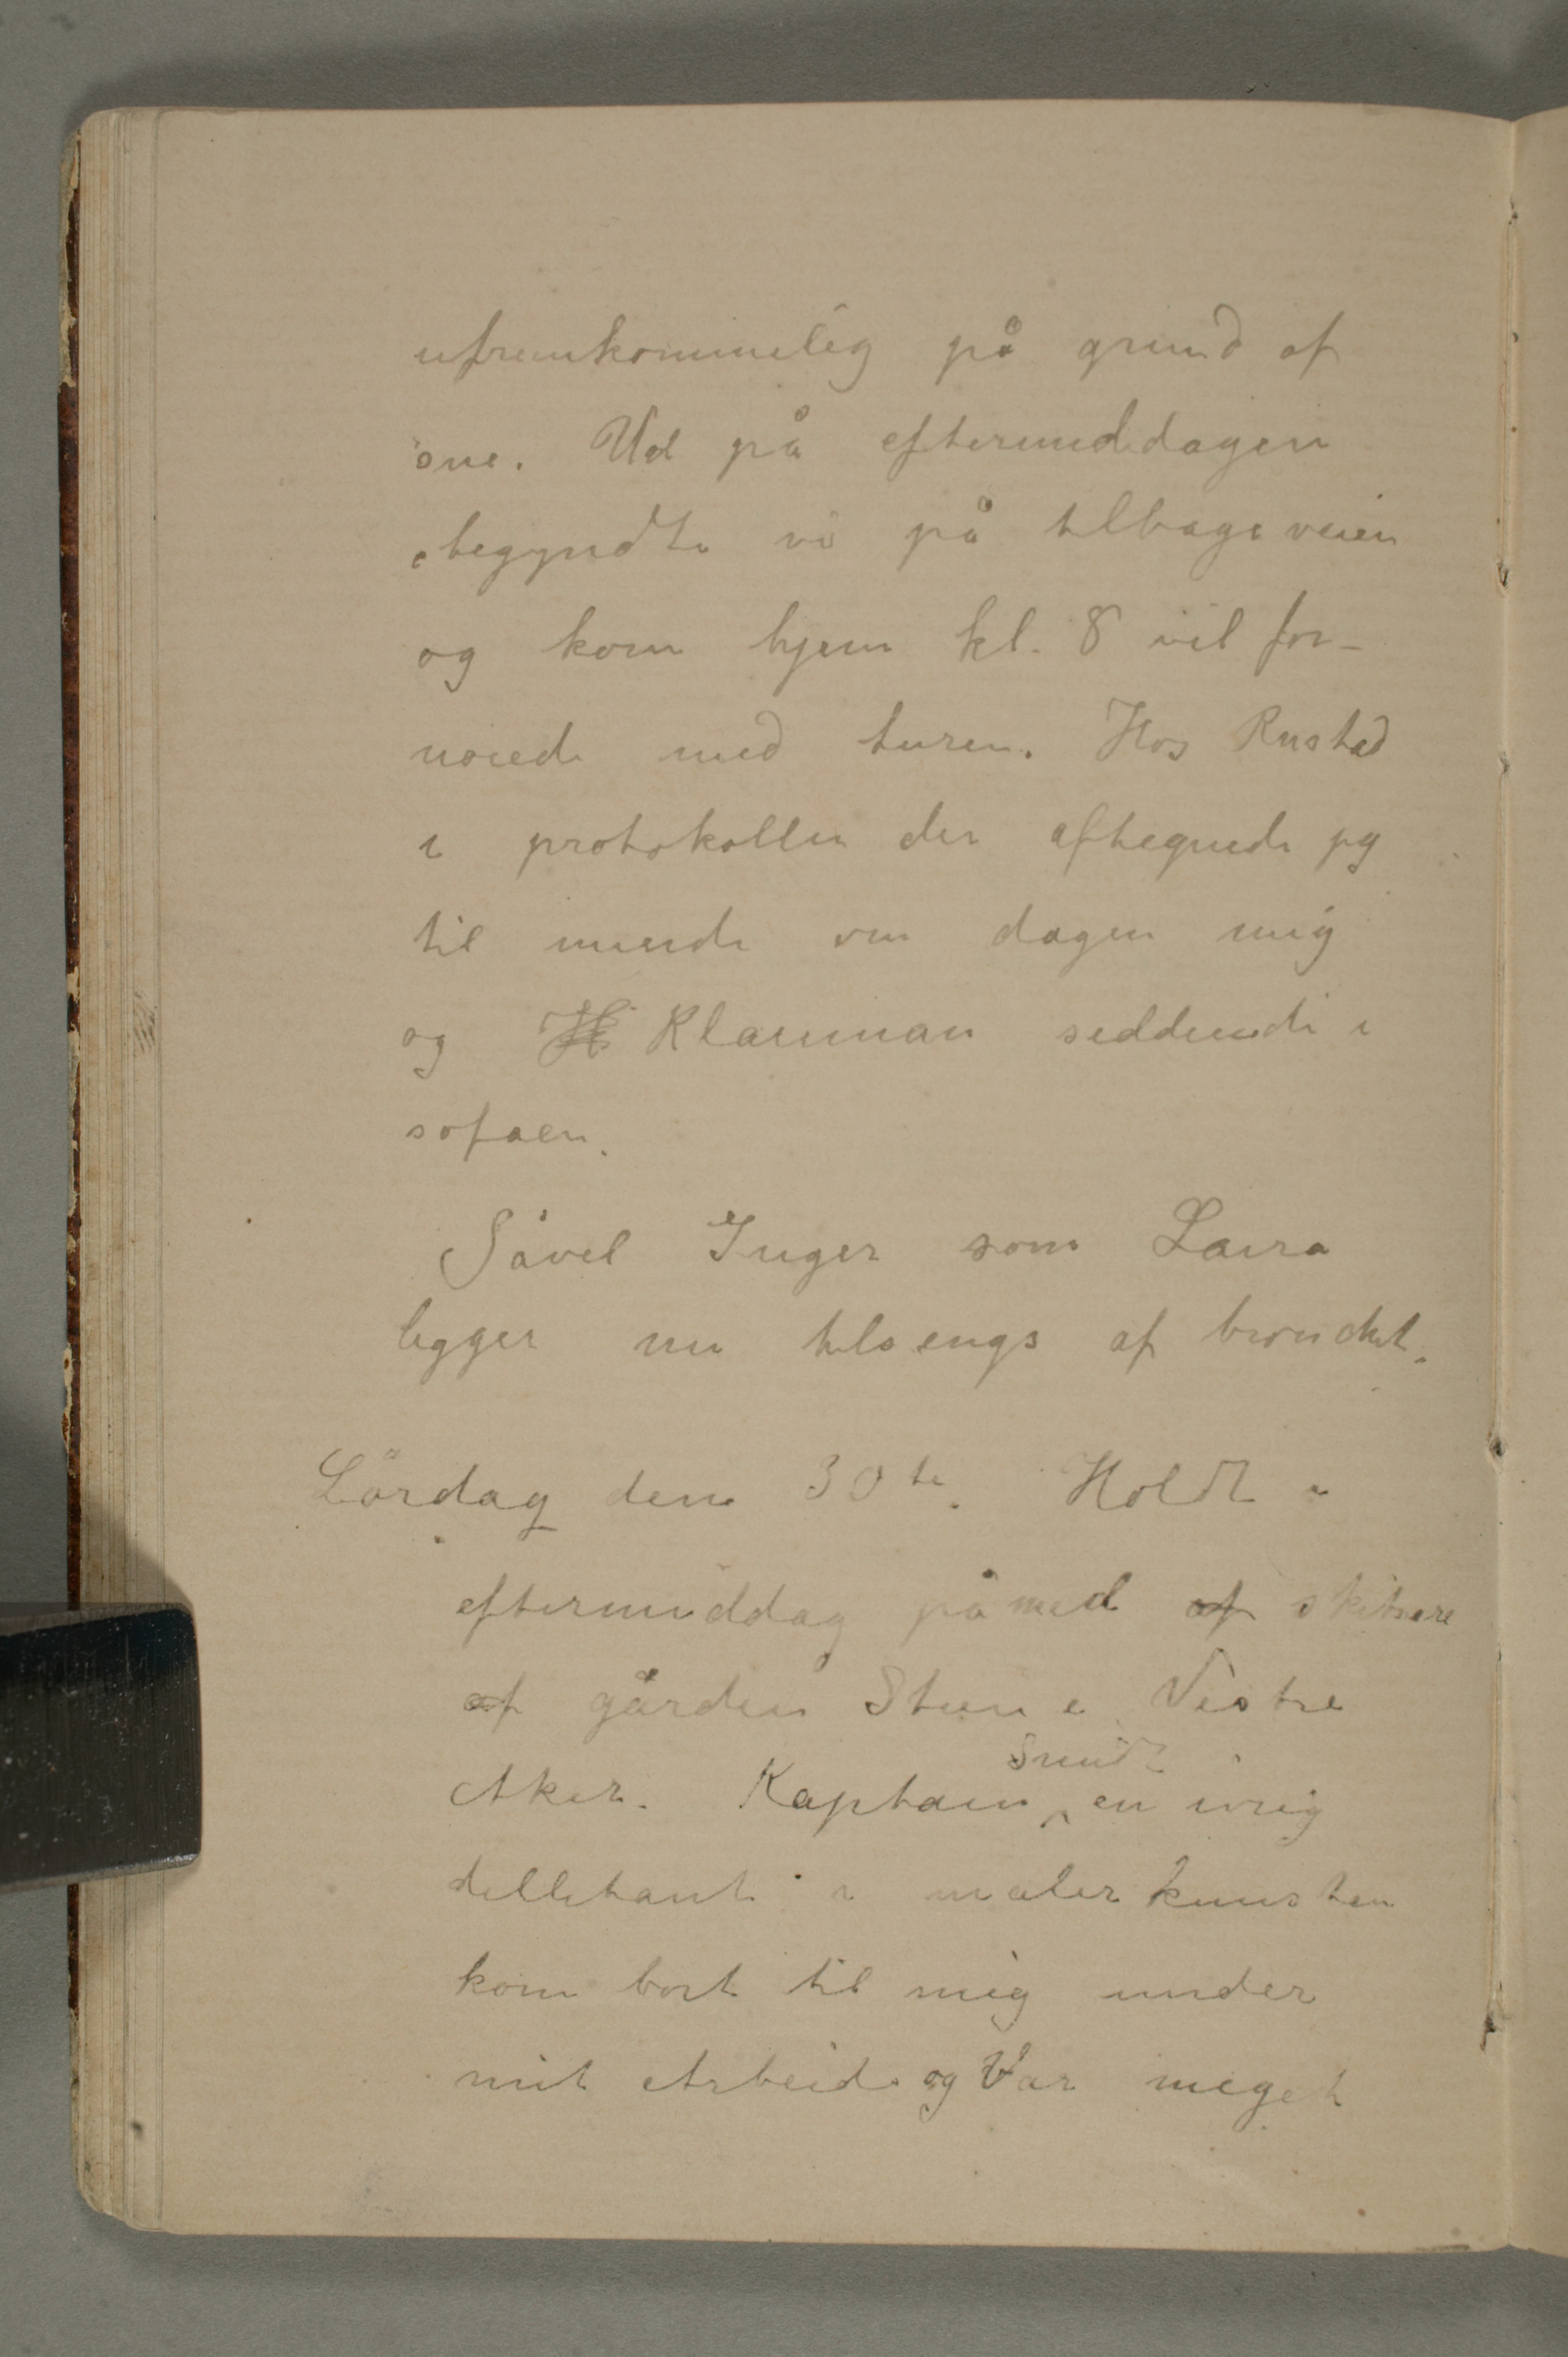 ufremkommelig på grund af
sne. Ud på eftermiddagen
begyndte vi på tilbageveien
og kom hjem kl. 8 vel for-
nøiede med turen. Hos Rustad
i protokollen der aftegnede jeg
til minde om dagen mig
og H Klaumann siddende i
sofaen.
Såvel Inger som Laura
ligger nu tilsengs af bronchit.
Lördag den 30te. Holdt i
eftermiddag på med af skitsere
af gården Steen i Vestre
Smidt
Aker. Kaptain en ivrig
dilletant i malerkunsten
kom bort til mig under
mit Arbeide og var meget